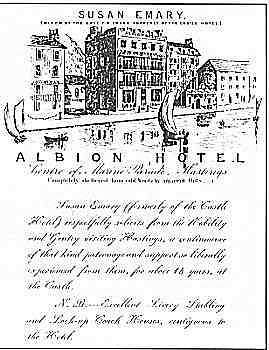 SUSAN EMARY,
ALBION HOTEL
Centre of Marine Parade, Hastings
Completely sheltered from cold Winds by
Susan Emary (formerly of the Castle
Hotel) respectfully solicits from the Nobility
and Gentry visiting Hastings, a continuance
of that kind patronage and support so liberally
experienced from them, for about 18 years, at
the Castle.
N.B.—Excellent Livery Stabling
and Lock-up Coach Houses, contiguous to
the Hotel.